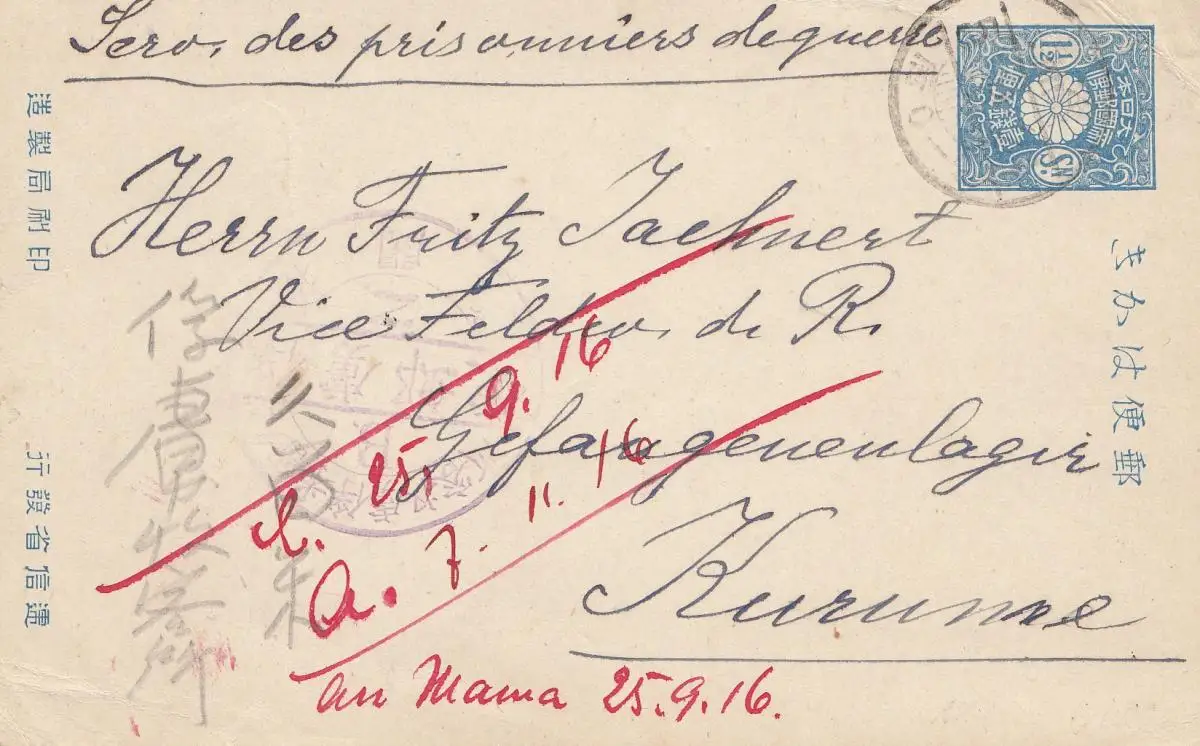 Serv. des prisonniers de guerre
Herrn Fritz Jaehnert
Vice Feldw. d. R.
Gefangenenlager
Kurume
25. 9. 16
a. 7. 11. 16
an Mama 25.9.16.
俘虜收容所
久留米
郵便はかき
大日本
帝國郵便
壹錢五厘
1½ Sn.
印刷局製造
逓信省發行